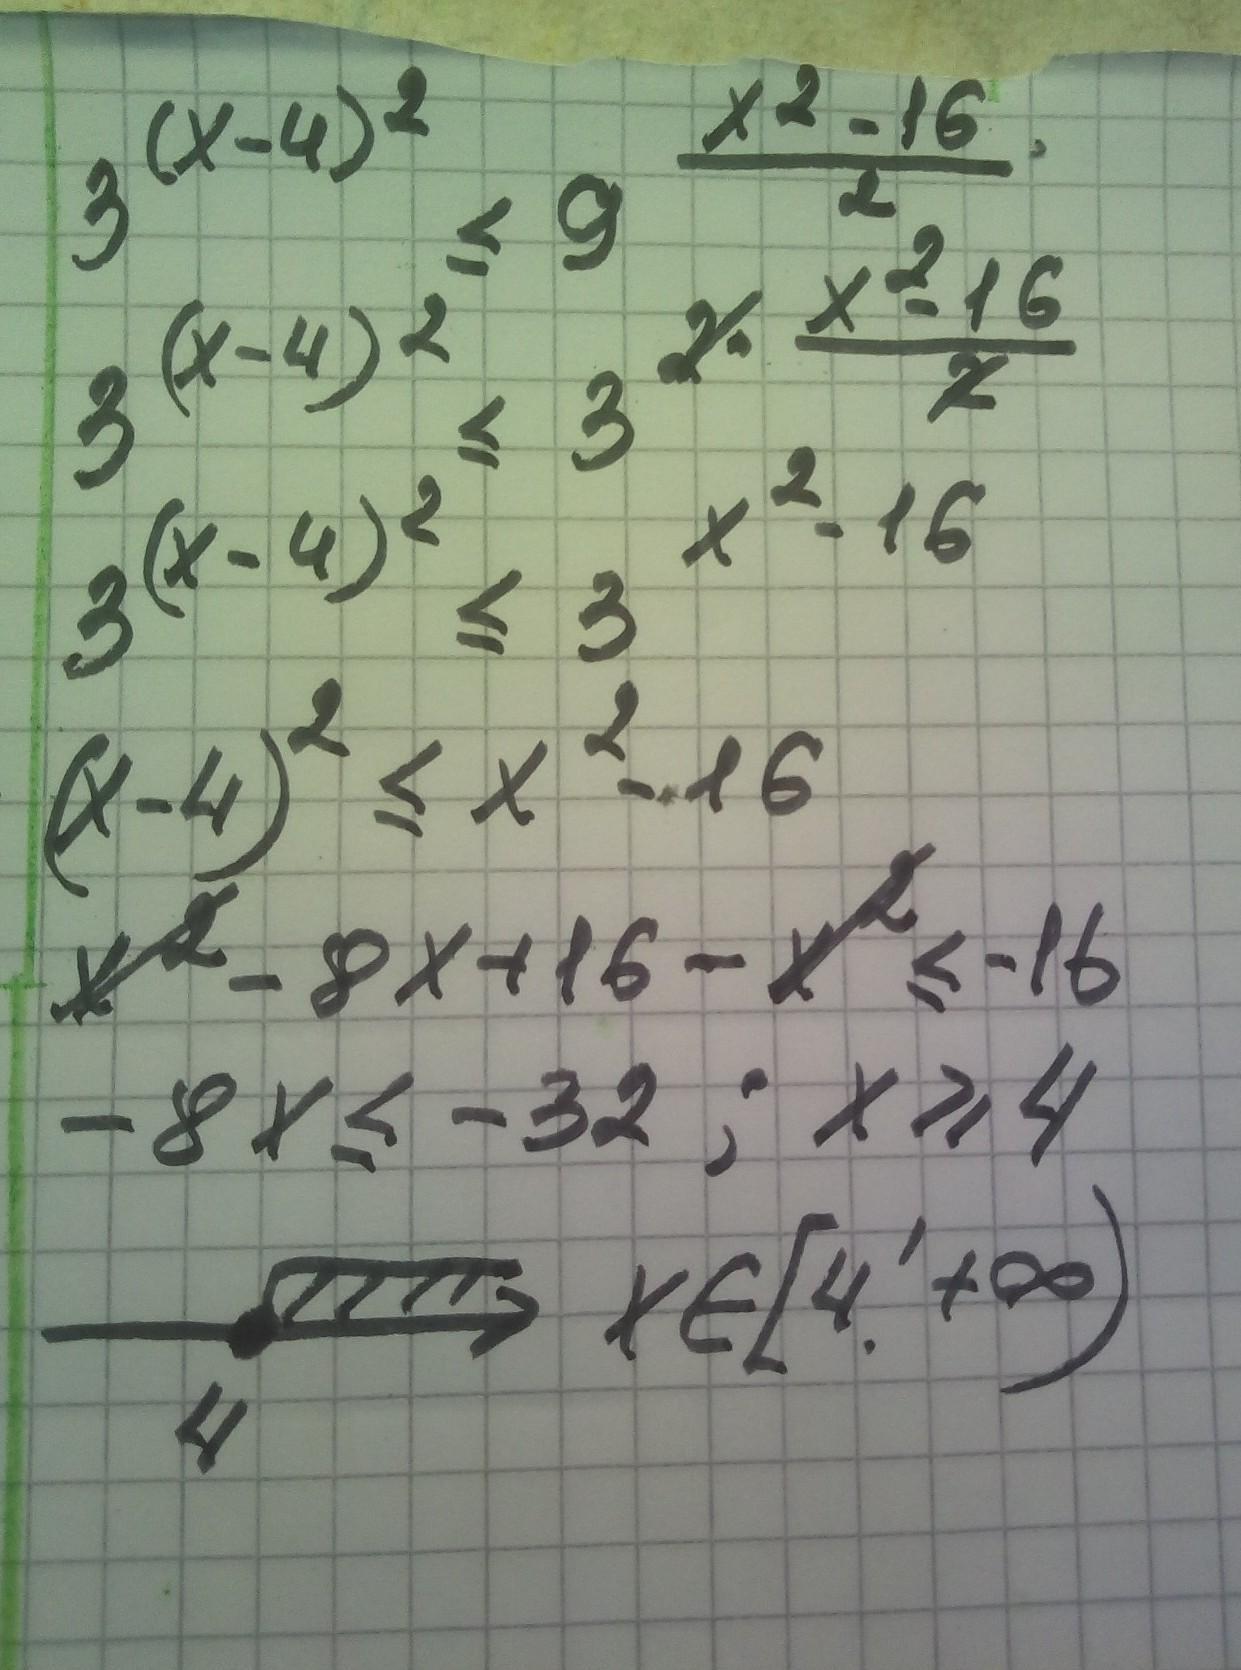 3^{(x-4)^2} ≤ 9^{\frac{x^2-16}{2}}.
3^{(x-4)^2} ≤ 3^{2·\frac{x^2-16}{2}}
3^{(x-4)^2} ≤ 3^{x^2-16}
(x-4)^2 ≤ x^2-16
x^2-8x+16-x^2 ≤ -16
-8x ≤ -32; x ≥ 4
4 x∈[4;+∞)